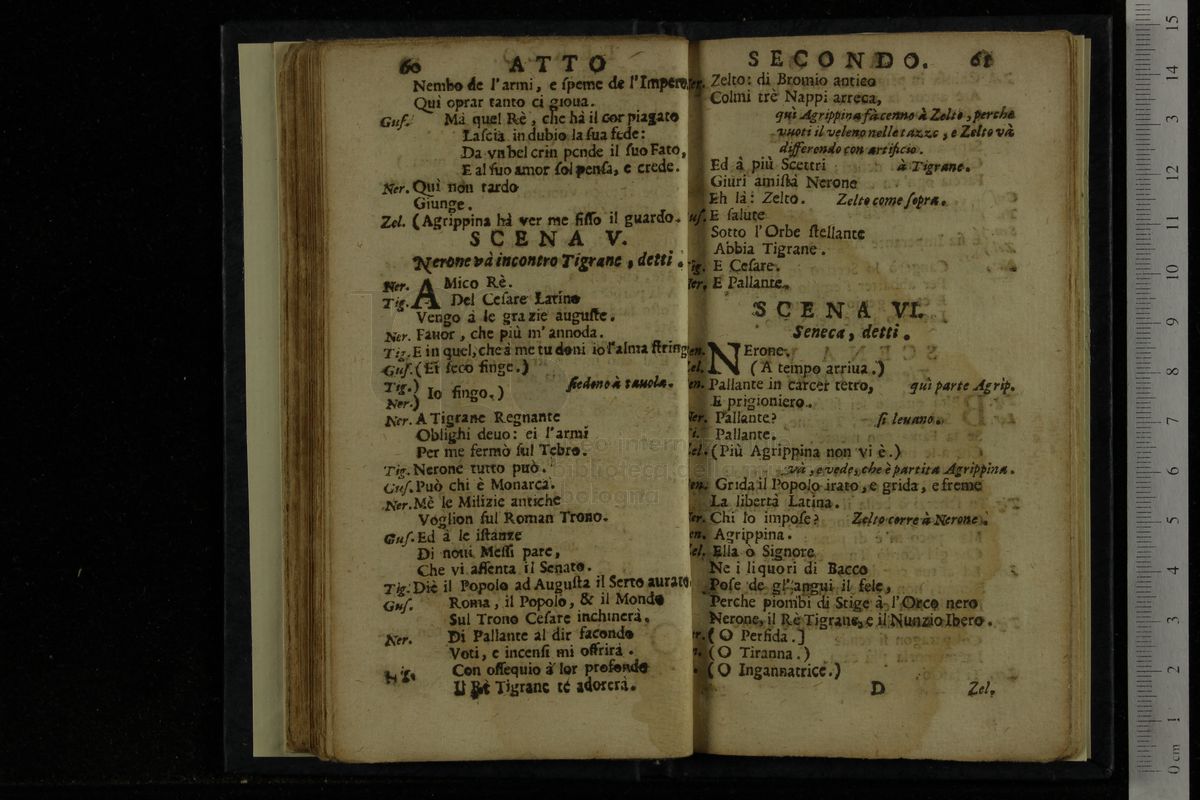 60 ATTO
Nembo de l'armi, e ſpeme de l'Impero
Qui oprar tanto ci gioua.
Guſ. Mà quel Rè, che hà il cor piagato
Laſcia in dubio la ſua fede:
Da vn bel crin pende il ſuo Fato,
E al ſuo amor ſol penſa, e crede.
Ner. Quì non tardo
Giunge.
Zel. (Agrippina hà ver me fiſſo il guardo.
SCENA V.
Nerone và incontro Tigrane, detti.
Ner. AMico Rè.
Tig. Del Ceſare Latino
Vengo à le grazie auguſte.
Ner. Fauor, che più m'annoda.
Tig. E in quel, che à me tu doni io l'alma ſtringo
Guſ. (Et ſeco finge.)
Tig.)
Ner.) Io fingo.) ſiedono à tauola.
Ner. A Tigrane Regnante
Oblighi deuo: ei l'armi
Per me fermò ſul Tebro.
Tig. Nerone tutto può.
Guſ. Può chi è Monarca.
Ner. Mè le Milizie antiche
Voglion ſul Roman Trono.
Guſ. Ed à le iſtanze
Di noui Meſſi pare,
Che vi aſſenta il Senato.
Tig. Diè il Popolo ad Auguſta il Serto aurato
Guſ. Roma, il Popolo, & il Mondo
Sul Trono Ceſare inchinerà.
Ner. Di Pallante al dir facondo
Voti, e incenſi mi offrirà.
Con oſſequio à lor profondo
Il Rè Tigrane te adorerà.
SECONDO. 61
Zelto: di Bromio antico
Colmi trè Nappi arreca,
quì Agrippina fà cenno à Zelto, perche
vuoti il veleno nelle tazze, e Zelto và
differendo con artificio.
Ed à più Scettri à Tigrane.
Giuri amiſtà Nerone
Eh là: Zelto. Zelto come ſopra.
uſ. E ſalute
Sotto l'Orbe ſtellante
Abbia Tigrane.
ig. E Ceſare.
er. E Pallante.
SCENA VI.
Seneca, detti.
en. NErone.
el. (A tempo arriua.)
en. Pallante in carcer tetro, quì parte Agrip.
E prigioniero.
er. Pallante? ſi leuano.
i. Pallante.
el. (Più Agrippina non vi è.)
và, e vede, che è partita Agrippina.
en. Grida il Popolo irato, e grida, e freme
La libertà Latina.
er. Chi lo impoſe? Zelto corre à Nerone.
en. Agrippina.
el. Ella ò Signore
Ne i liquori di Bacco
Poſe de gl'angui il fele,
Perche piombi di Stige à l'Orco nero
Nerone, il Rè Tigrane, e il Nunzio Ibero.
r. ( O Perfida.]
(O Tiranna.)
(O Ingannatrice.)
D Zel.